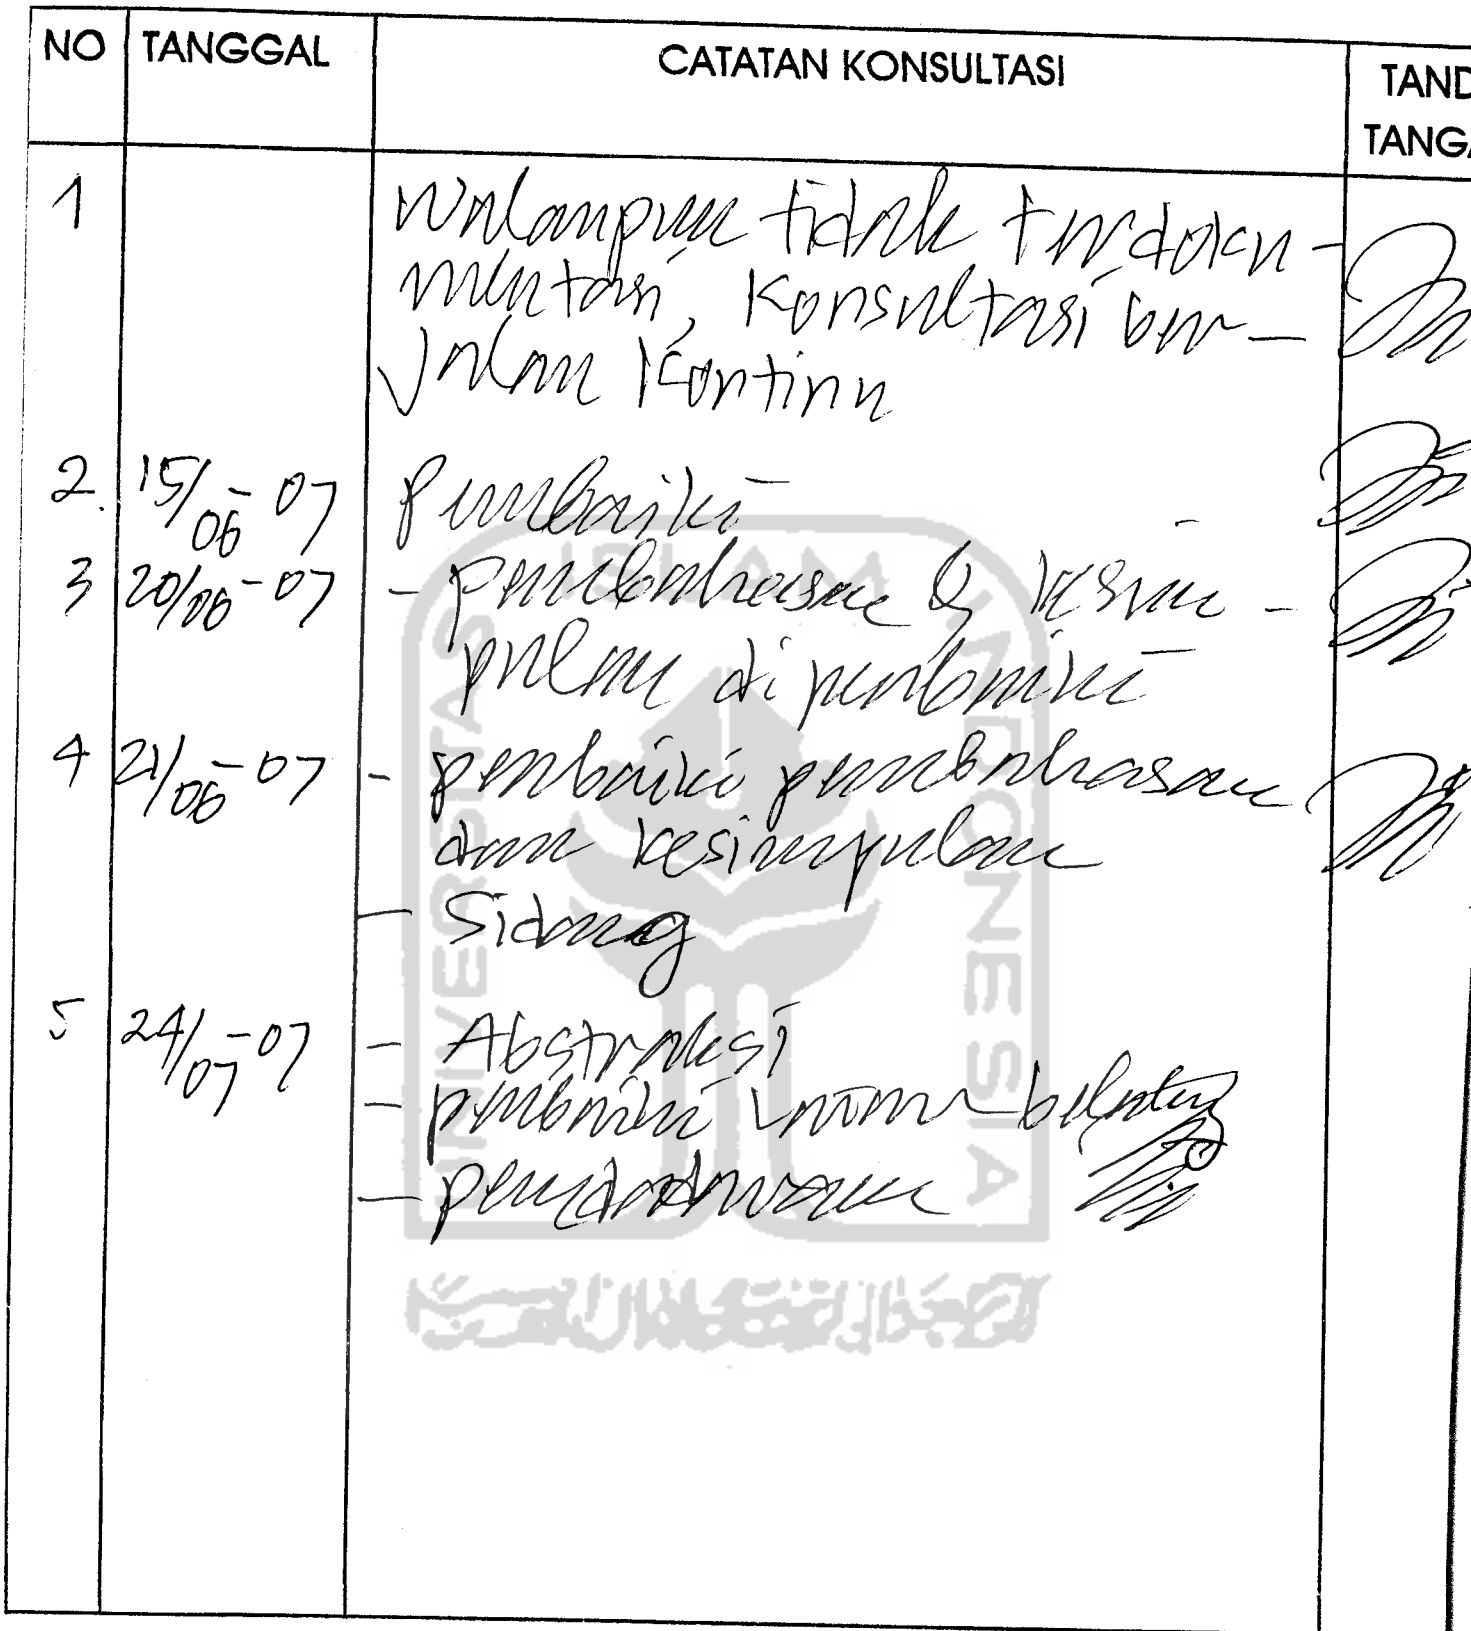 NO TANGGAL CATATAN KONSULTASI TAND
TANGA
1 Walaupun tidak terdoku-
mentasi, Konsultasi ber-
jalan Kontinu
2. 15/06-07 Perbaiki
3 20/06-07 - pembahasan & kesim-
pulan diperbaiki
4 21/06-07 - perbaiki pembahasan
dan kesimpulan
- Sidang
5 24/07-07 - Abstraksi
- perbaiki latar belakang
- pendadaran
UNIVERSITAS ISLAM INDONESIA